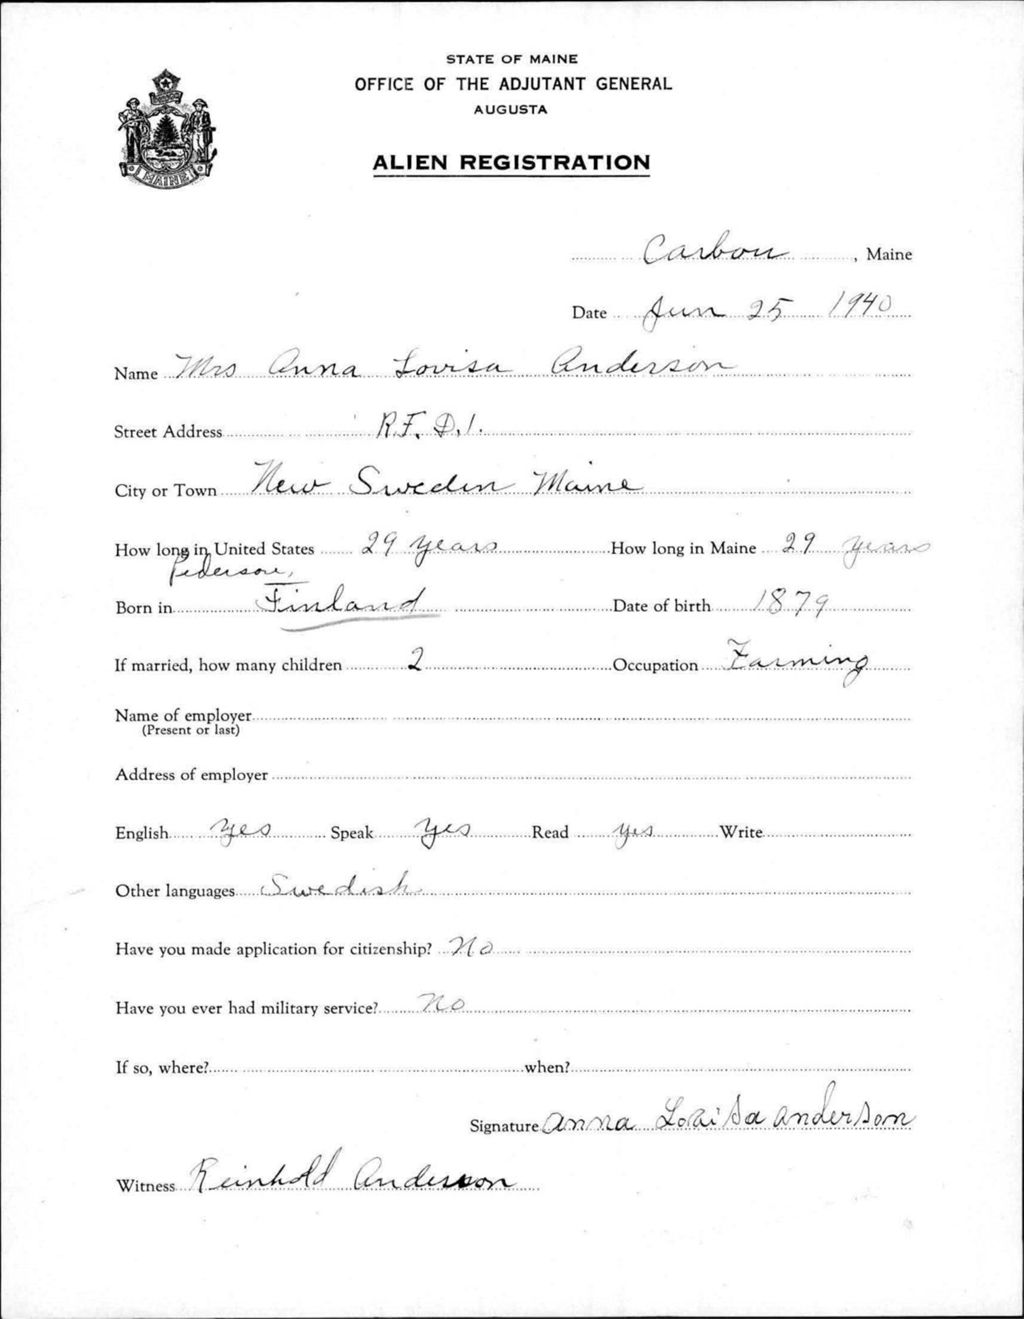 STATE OF MAINE
OFFICE OF THE ADJUTANT GENERAL
AUGUSTA
ALIEN REGISTRATION
MAINE
Carbou, Maine
Date Jun 25 1940
Name Mrs Anna Lovisa Anderson
Street Address R.F.D.1.
City or Town New Sweden Maine
How long in United States 29 years How long in Maine 29 years
Pederson,
Born in Finland Date of birth 1879
If married, how many children 2 Occupation Farming
Name of employer
(Present or last)
Address of employer
English yes Speak yes Read yes Write
Other languages Swedish
Have you made application for citizenship? No
Have you ever had military service? No
If so, where? when?
Signature Anna Lovisa Anderson
Witness Reinhold Anderson